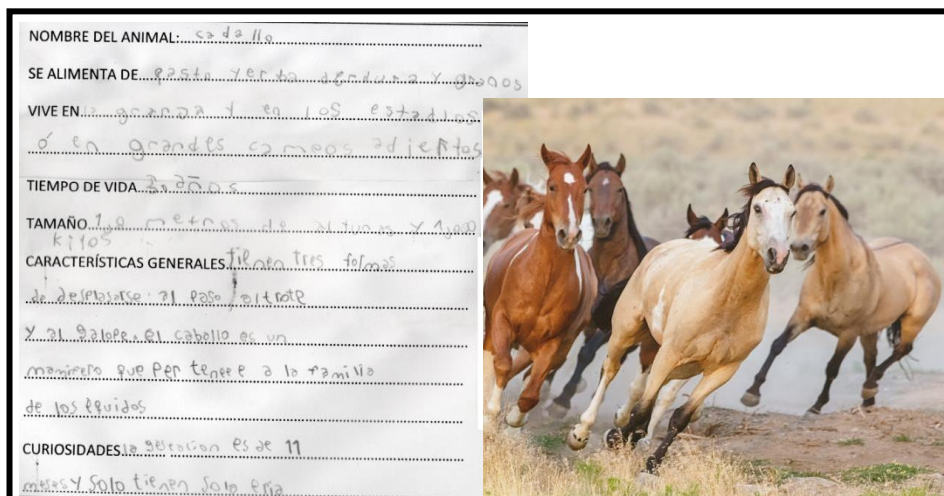 NOMBRE DEL ANIMAL: cadallo
SE ALIMENTA DE pasto yerba verdura y granos
VIVE EN la granza y en los establos
ó en grandes campos adiertos
TIEMPO DE VIDA 30 años
TAMAÑO metros de altura y 1,000
kilos
CARACTERÍSTICAS GENERALES tienen tres formas
de desplasarse: al paso, al trote
y al galope. el caballo es un
mamifero que per tenece a la familia
de los equidos
CURIOSIDADES la gestacion es de 11
meses y solo tienen solo cria